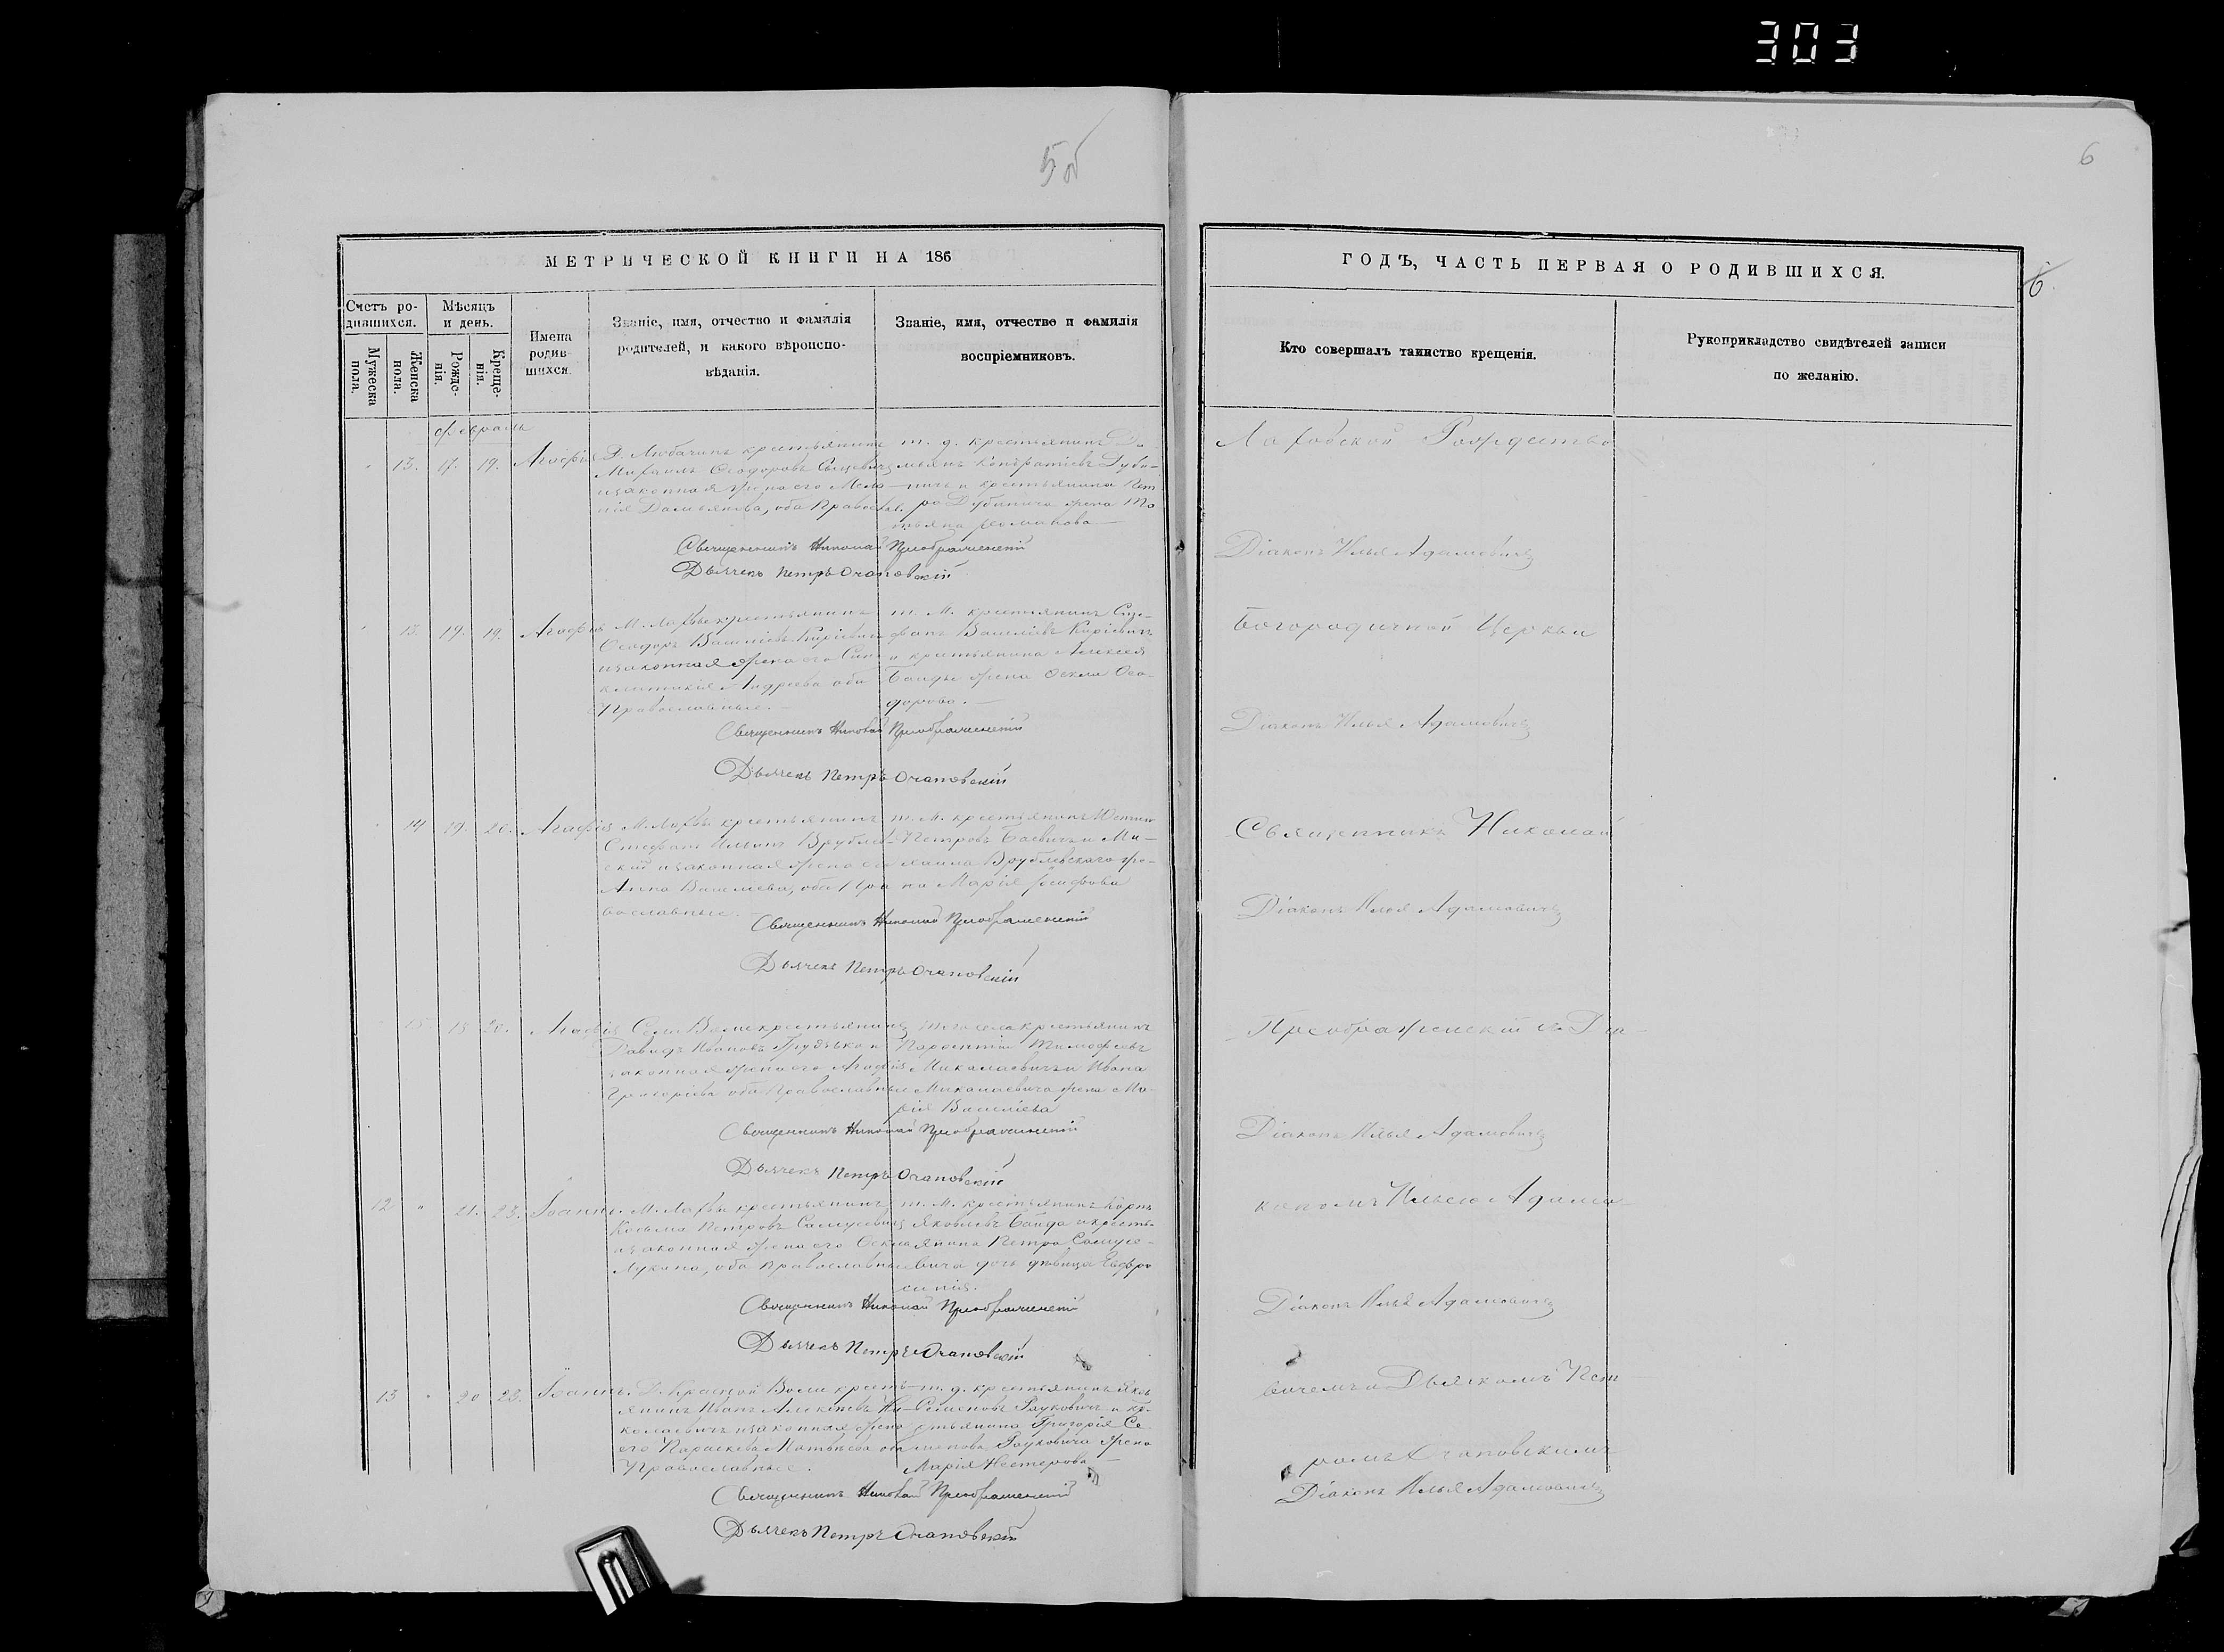 303
5об
6
МЕТРИЧЕСКОЙ КНИГИ НА 186
Счетъ ро-
дившихся.
Мужеска
пола.
Женска
пола.
Мѣсяцъ
и день.
Рожде-
нія.
Креще-
нія.
Имена
родив-
шихся.
Званіе, имя, отчество и фамилія
родителей, и какого вѣроиспо-
вѣданія.
Званіе, имя, отчество и фамилія
воспріемниковъ.
Февраль
13. 17. 19. Агафія
Д. Любачинъ крестьянинъ
Михаилъ Ѳеодоровъ
и законная жена его Мела-
нія Дамьянова, оба Правосл.
т. д. крестьянинъ Да
мьянъ Кондратіевъ Дуби-
ничъ и крестьянина Пет
ро Дубинича жена Та
тьяна Романова
Священникъ Николай Преображенскій
Дьячекъ Петръ Очаповскій
13. 19. 19. Агафія
М. Лахвы крестьянинъ
Ѳеодоръ Василіевъ Кирієвичъ
и законная жена его Син-
клитикія Андреева оба
Православные.
т. М. крестьянинъ Сте-
фанъ Василіевъ Кирієвичъ
и крестьянина Алексея
Банды жена Ѳекла Ѳео-
дорова.
Священникъ Николай Преображенскій
Дьячекъ Петръ Очаповскій
14 19. 20. Агафія
М. Лахвы крестьянинъ
Стефанъ Ильинъ Врублев-
скій и законная жена его
Анна Василіева, оба Пра
вославные.
т. М. крестьянинъ
Петровъ Баевичъ и Ми-
хаила Врублевскаго же-
на Марія Іосифова
Священникъ Николай Преображенскій
Дьячекъ Петръ Очаповскій
15 15 20. Агафія
Села Воли крестьянинъ
Давидъ Ивановъ Грудько и
законная жена его Агафія
Григоріева оба Православные
того села крестьянинъ
Тимофеевъ
Миколаевичъ и Ивана
Миколаевича жена Ма-
рія Василіева
Священникъ Николай Преображенскій
Дьячекъ Петръ Очаповскій
12 " 21. 23. Іоаннъ.
М. Лахвы крестьянинъ
Козьма Петровъ Самусевичъ
и законная жена его Ѳекла
Лукина, оба православные
т. М. крестьянинъ
Яковлевъ Банда и кресть-
янина Петра Самусе-
вича дочь дѣвица Евфро
синія.
Священникъ Николай Преображенскій
Дьячекъ Петръ Очаповскій
13 " 20 23. Іоаннъ.
Д. Красной Воли кресть-
янинъ Иванъ Алексѣевъ Ни-
колаевичъ и законная жена
его Параскева Матвѣева оба
Православные.
т. д. крестьянинъ Яков
Семеновъ Рауковичъ и кре-
стьянина Григорія Се-
менова Рауковича жена
Марія Нестерова
Священникъ Николай Преображенскій
Дьячекъ Петръ Очаповскій
6
6
ГОДЪ, ЧАСТЬ ПЕРВАЯ О РОДИВШИХСЯ.
Кто совершалъ таинство крещенія.
Рукоприкладство свидѣтелей записи
по желанію.
Лаховской Рождество
Діаконъ Илья Адамовичъ
Богородичной Церкви
Діаконъ Илья Адамовичъ
Священникъ Николай
Діаконъ Илья Адамовичъ
Преображенскій съ Діа-
Діаконъ Илья Адамовичъ
кономъ Ильею Адамо-
Діаконъ Илья Адамовичъ
вичемъ и Дьячкомъ Пет
ромъ Очаповскимъ
Діаконъ Илья Адамовичъ